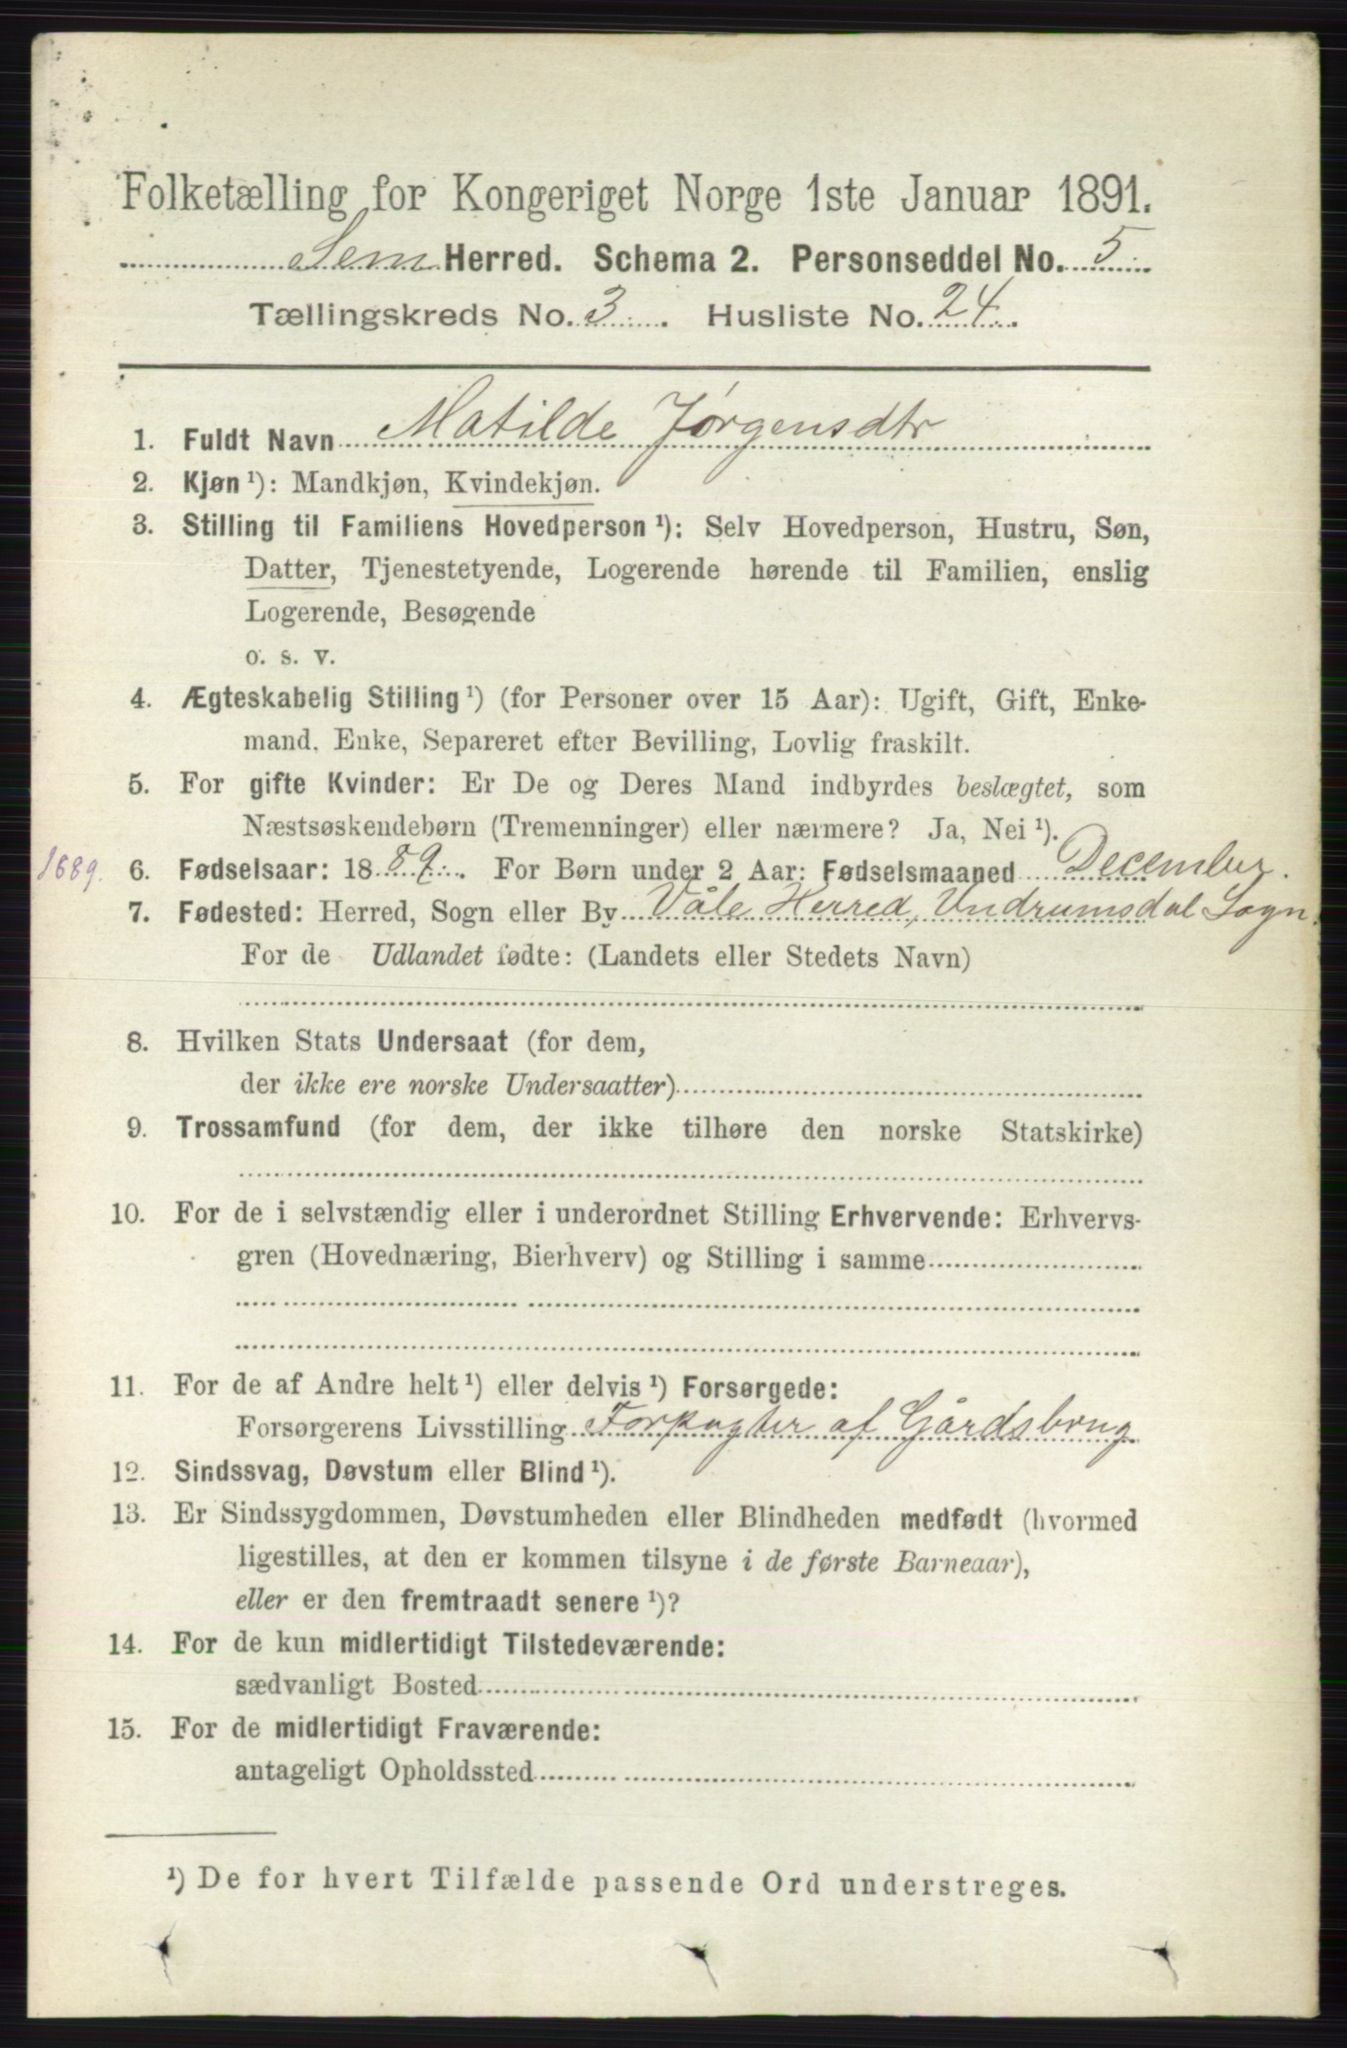 Folketælling for Kongeriget Norge 1ste Januar 1891.
Sem Herred. Schema 2. Personseddel No. 5
Tællingskreds No. 3. Husliste No. 24.
1. Fuldt Navn Matilde Jørgensdtr
2. Kjøn ¹): Mandkjøn, Kvindekjøn.
3. Stilling til Familiens Hovedperson ¹): Selv Hovedperson, Hustru, Søn,
Datter, Tjenestetyende, Logerende hørende til Familien, enslig
Logerende, Besøgende
o. s. v.
4. Ægteskabelig Stilling ¹) (for Personer over 15 Aar): Ugift, Gift, Enke-
mand, Enke, Separeret efter Bevilling, Lovlig fraskilt.
5. For gifte Kvinder: Er De og Deres Mand indbyrdes beslægtet, som
Næstsøskendebørn (Tremenninger) eller nærmere? Ja, Nei ¹).
1889. 6. Fødselsaar: 1889. For Børn under 2 Aar: Fødselsmaaned December.
7. Fødested: Herred, Sogn eller By Våle Herred, Undrumsdal Sogn.
For de Udlandet fødte: (Landets eller Stedets Navn)
8. Hvilken Stats Undersaat (for dem,
der ikke ere norske Undersaatter)
9. Trossamfund (for dem, der ikke tilhøre den norske Statskirke)
10. For de i selvstændig eller i underordnet Stilling Erhvervende: Erhvervs-
gren (Hovednæring, Bierhverv) og Stilling i samme
11. For de af Andre helt ¹) eller delvis ¹) Forsørgede:
Forsørgerens Livsstilling Forpagter af Gårdsbrug
12. Sindssvag, Døvstum eller Blind ¹).
13. Er Sindssygdommen, Døvstumheden eller Blindheden medfødt (hvormed
ligestilles, at den er kommen tilsyne i de første Barneaar),
eller er den fremtraadt senere ¹)?
14. For de kun midlertidigt Tilstedeværende:
sædvanligt Bosted
15. For de midlertidigt Fraværende:
antageligt Opholdssted
¹) De for hvert Tilfælde passende Ord understreges.